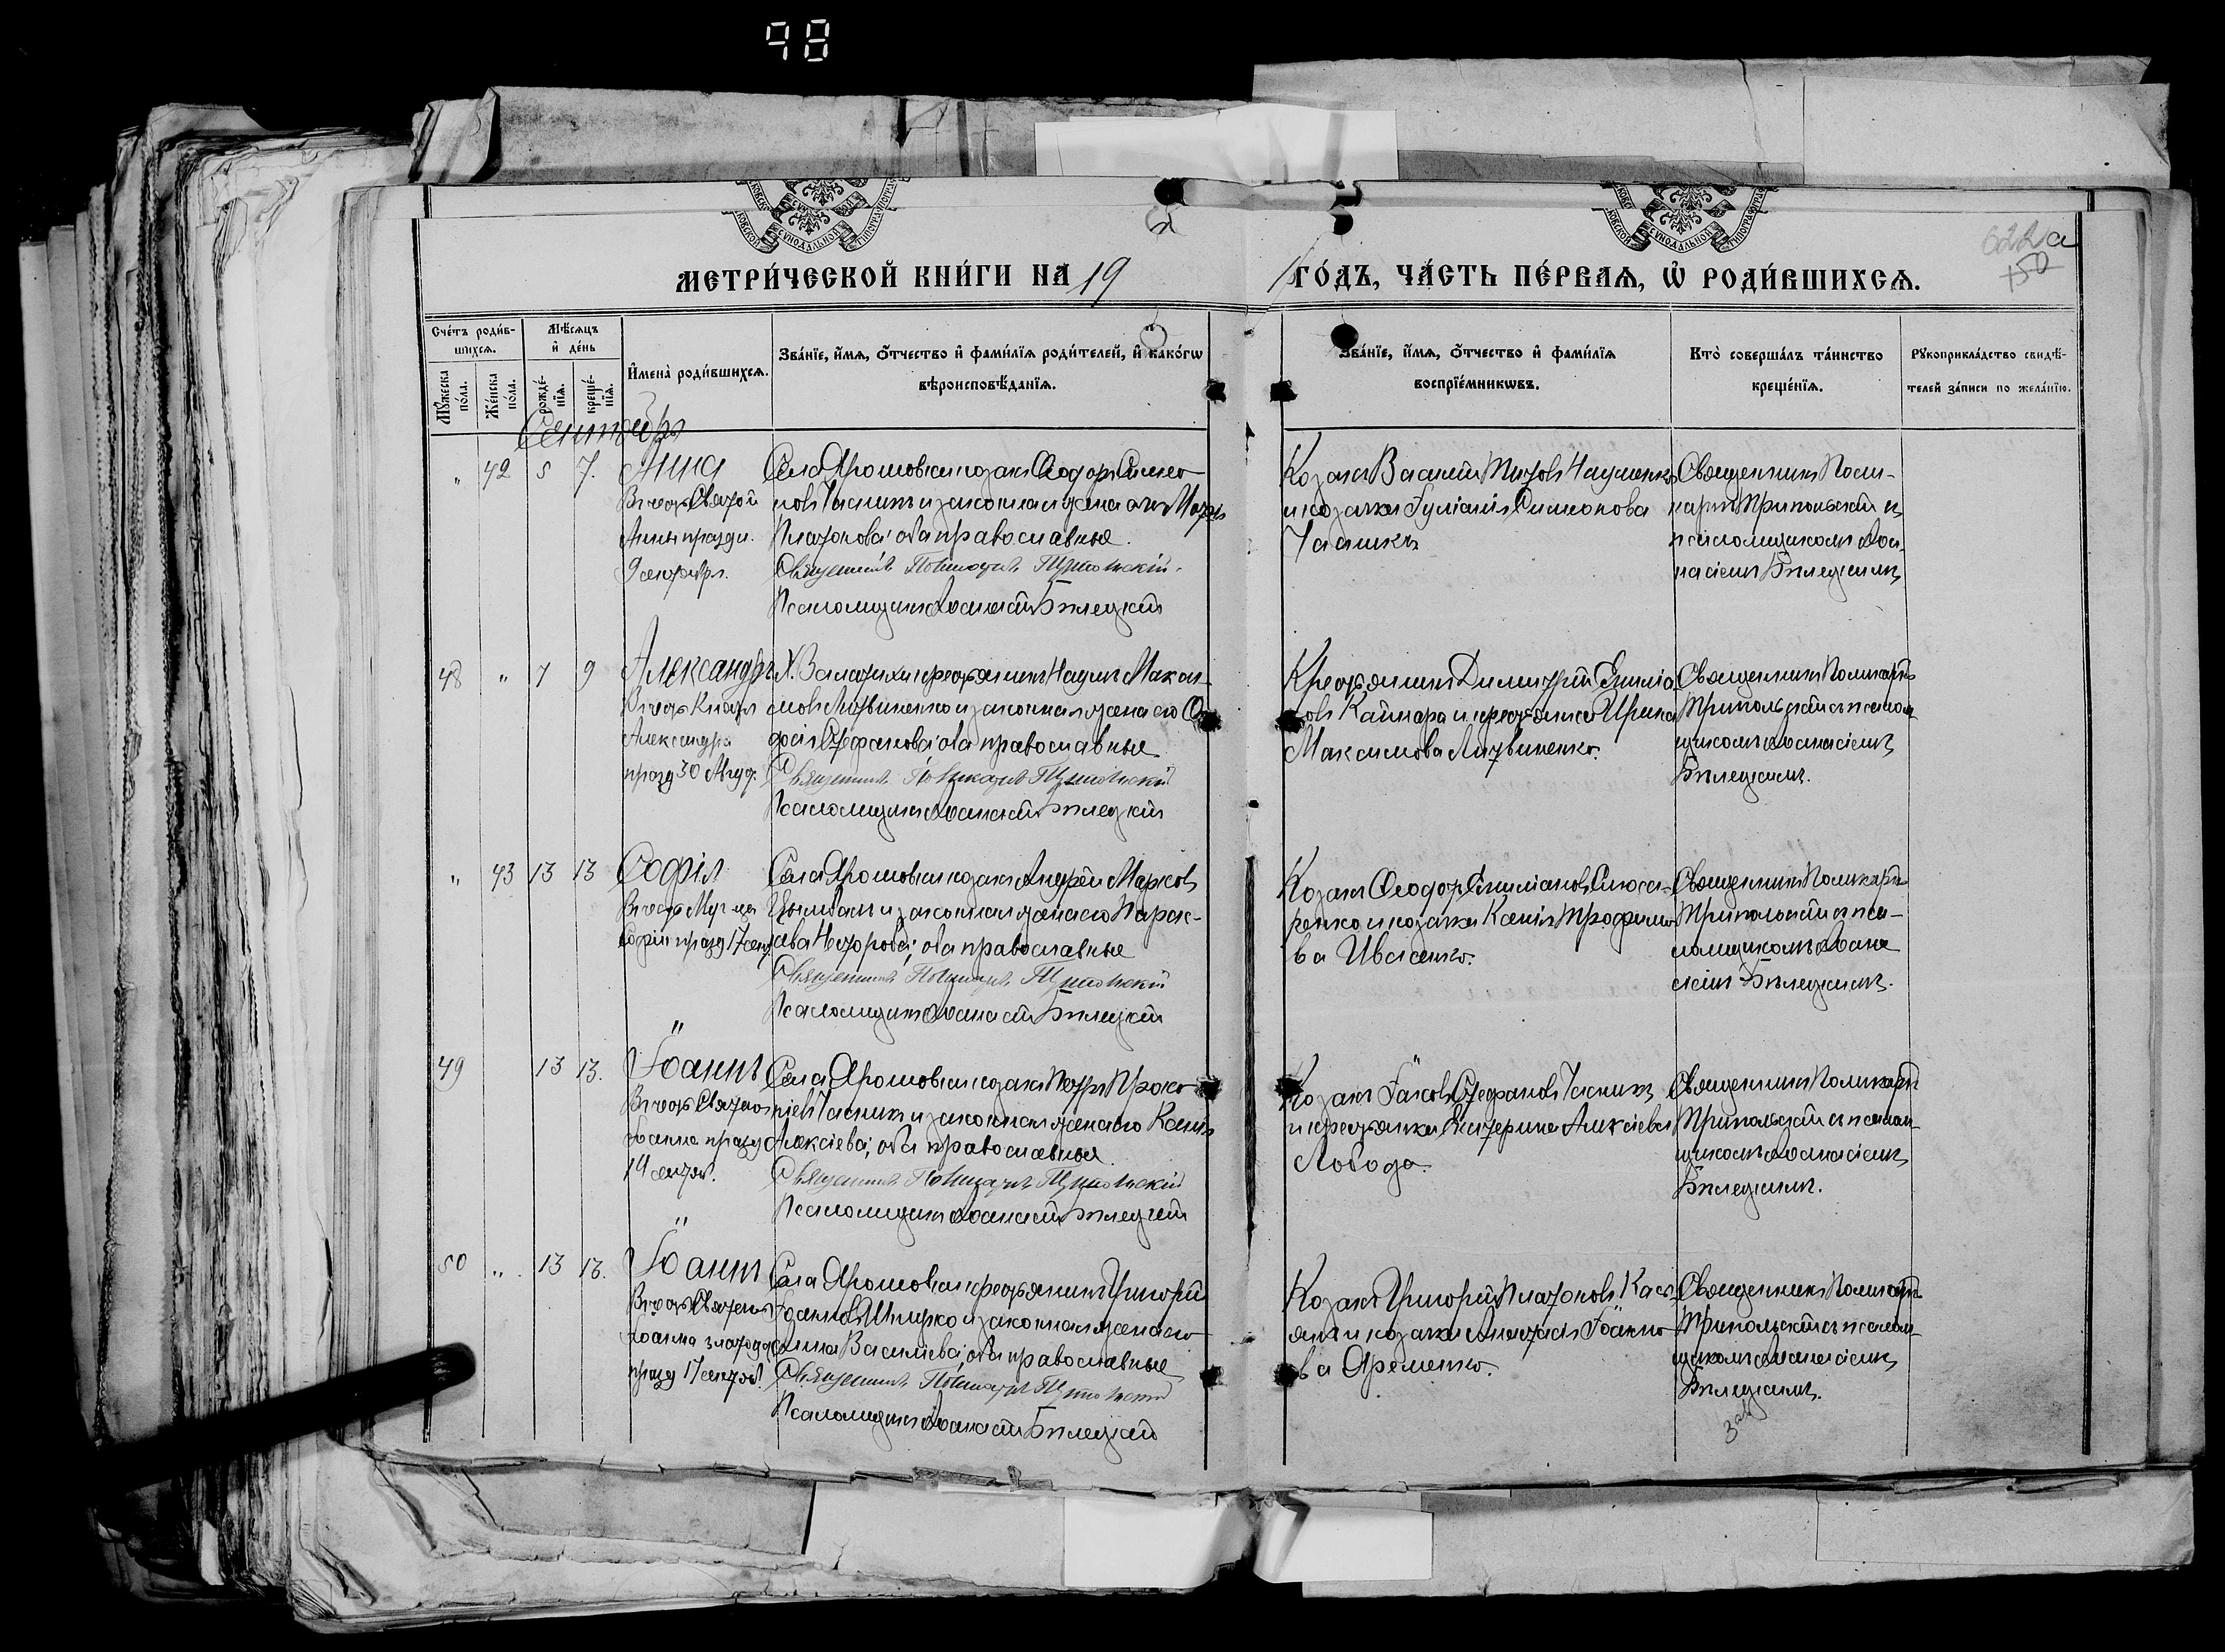 98
622а
+50
МЕТРИ́ЧЕСКОЙ КНИ́ГИ НА 19
1 ГО́ДЪ, ЧА́СТЬ ПЕ́РВАѦ, Ѡ҆ РОДИ́ВШИХСѦ.
Сче́тъ роди́в-
шихсѧ.
Мꙋ́жеска по́ла.
Же́нска по́ла.
Мѣ́сѧцъ
и҆ де́нь
рожде́-
нїѧ.
креще́-
нїѧ.
И҆мена̀ роди́вшихсѧ.
Зва́нїе, и҆́мѧ, ѻ҆́тчество и҆ фами́лїѧ роди́телей, и҆ како́гѡ
вѣроисповѣ́данїѧ.
Зва́нїе, и҆́мѧ, ѻ҆́тчество и҆ фами́лїѧ
воспрїе́мникѡвъ.
Кто̀ соверша́лъ та́инство
креще́нїѧ.
Рꙋкоприкла́дство свидѣ́-
телей за́писи по жела́нїю.
Сентябрь
" 42 5 7. Анна
Въ честь Святой
Анны праздн.
9 сентября.
Села Ярошовки козакъ Ѳеодоръ Симео-
новъ Тасникъ и законная жена его
Платонова; оба православные.
Священникъ Поликарпъ Трипольскій.
Псаломщикъ Аѳанасій Бѣлецкій
Козакъ Василій Титовъ Науменко
и козачка Іуліанія Симеонова
Священникъ Поли-
карпъ Трипольскій съ
псаломщикомъ Аѳа-
насіемъ Бѣлецкимъ
48 " 7 9 Александръ
Въ честь Князя
Александра
празд 30 Авгус.
Х. крестьянинъ Наумъ Макси-
мовъ Литвиненко и законная жена его
Стефанова; оба православные
Священникъ Поликарпъ Трипольскій
Псаломщикъ Аѳанасій Бѣлецкій
Крестьянинъ Димитрій Емилiа-
новъ и крестьянка Ирина
Максимова Литвиненко.
Священникъ Поликарпъ
Трипольскій съ псалом-
щикомъ Аѳанасіемъ
Бѣлецкимъ.
" 43 13 13 Софія
Въ честь Муч-цы
Софіи празд 17 сент
Села Ярошовки козакъ Андрей Марковъ
и законная жена его Парас-
оба православные
Священникъ Поликарпъ Трипольскій
Псаломщикъ Аѳанасій Бѣлецкій
Козакъ Ѳеодоръ Емиліановъ Слюса-
ренко и козачка Ксенія Трофимо-
ва Иващенко.
Священникъ Поликарпъ
Трипольскій съ пса-
ломщикомъ Аѳана-
сіемъ Бѣлецкимъ.
49 " 13 13. Іоаннъ
Въ честь Святого
Іоанна празд
19 сентяб.
Села Ярошовки козакъ Петръ Проко-
піевъ Тасникъ и законная жена его Ксенія
Алексіева; оба православные.
Священникъ Поликарпъ Трипольскій
Псаломщикъ Аѳанасій Бѣлецкій
Козакъ Іаковъ Стефановъ Тасникъ
и крестьянка Екатерина Алексіева
Лобода.
Священникъ Поликарпъ
Трипольскій съ псалом-
щикомъ Аѳанасіемъ
Бѣлецкимъ.
50 " 13 13. Іоаннъ
Въ честь Святого
Іоанна
празд 17 сентяб
Села Ярошовки крестьянинъ Григорій
Іоанновъ и законная жена его
Васильева; оба православные
Священникъ Поликарпъ Трипольскій
Псаломщикъ Аѳанасій Бѣлецкій
Козакъ Григорій Платоновъ
и козачка Анастасія Іоанно-
ва Яременко.
Священникъ Поликарпъ
Трипольскій съ псалом-
щикомъ Аѳанасіемъ
Бѣлецкимъ.